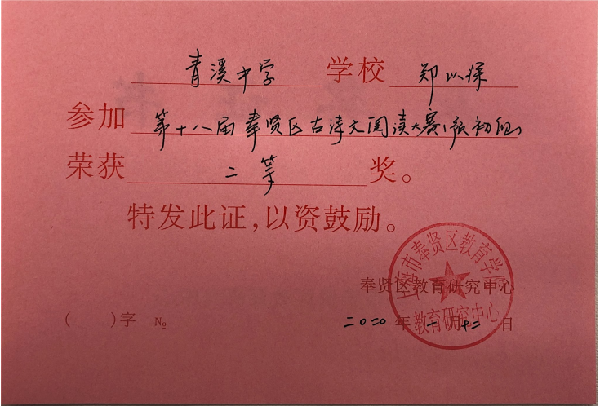 青溪中学 学校 郑以琛
参加 第十八届奉贤区古诗文阅读大赛(预初组)
荣获 二等 奖。
特发此证,以资鼓励。
上海市奉贤区教育学院
奉贤区教育研究中心
教育研究中心
( )字 № 二〇二〇年一月十二日